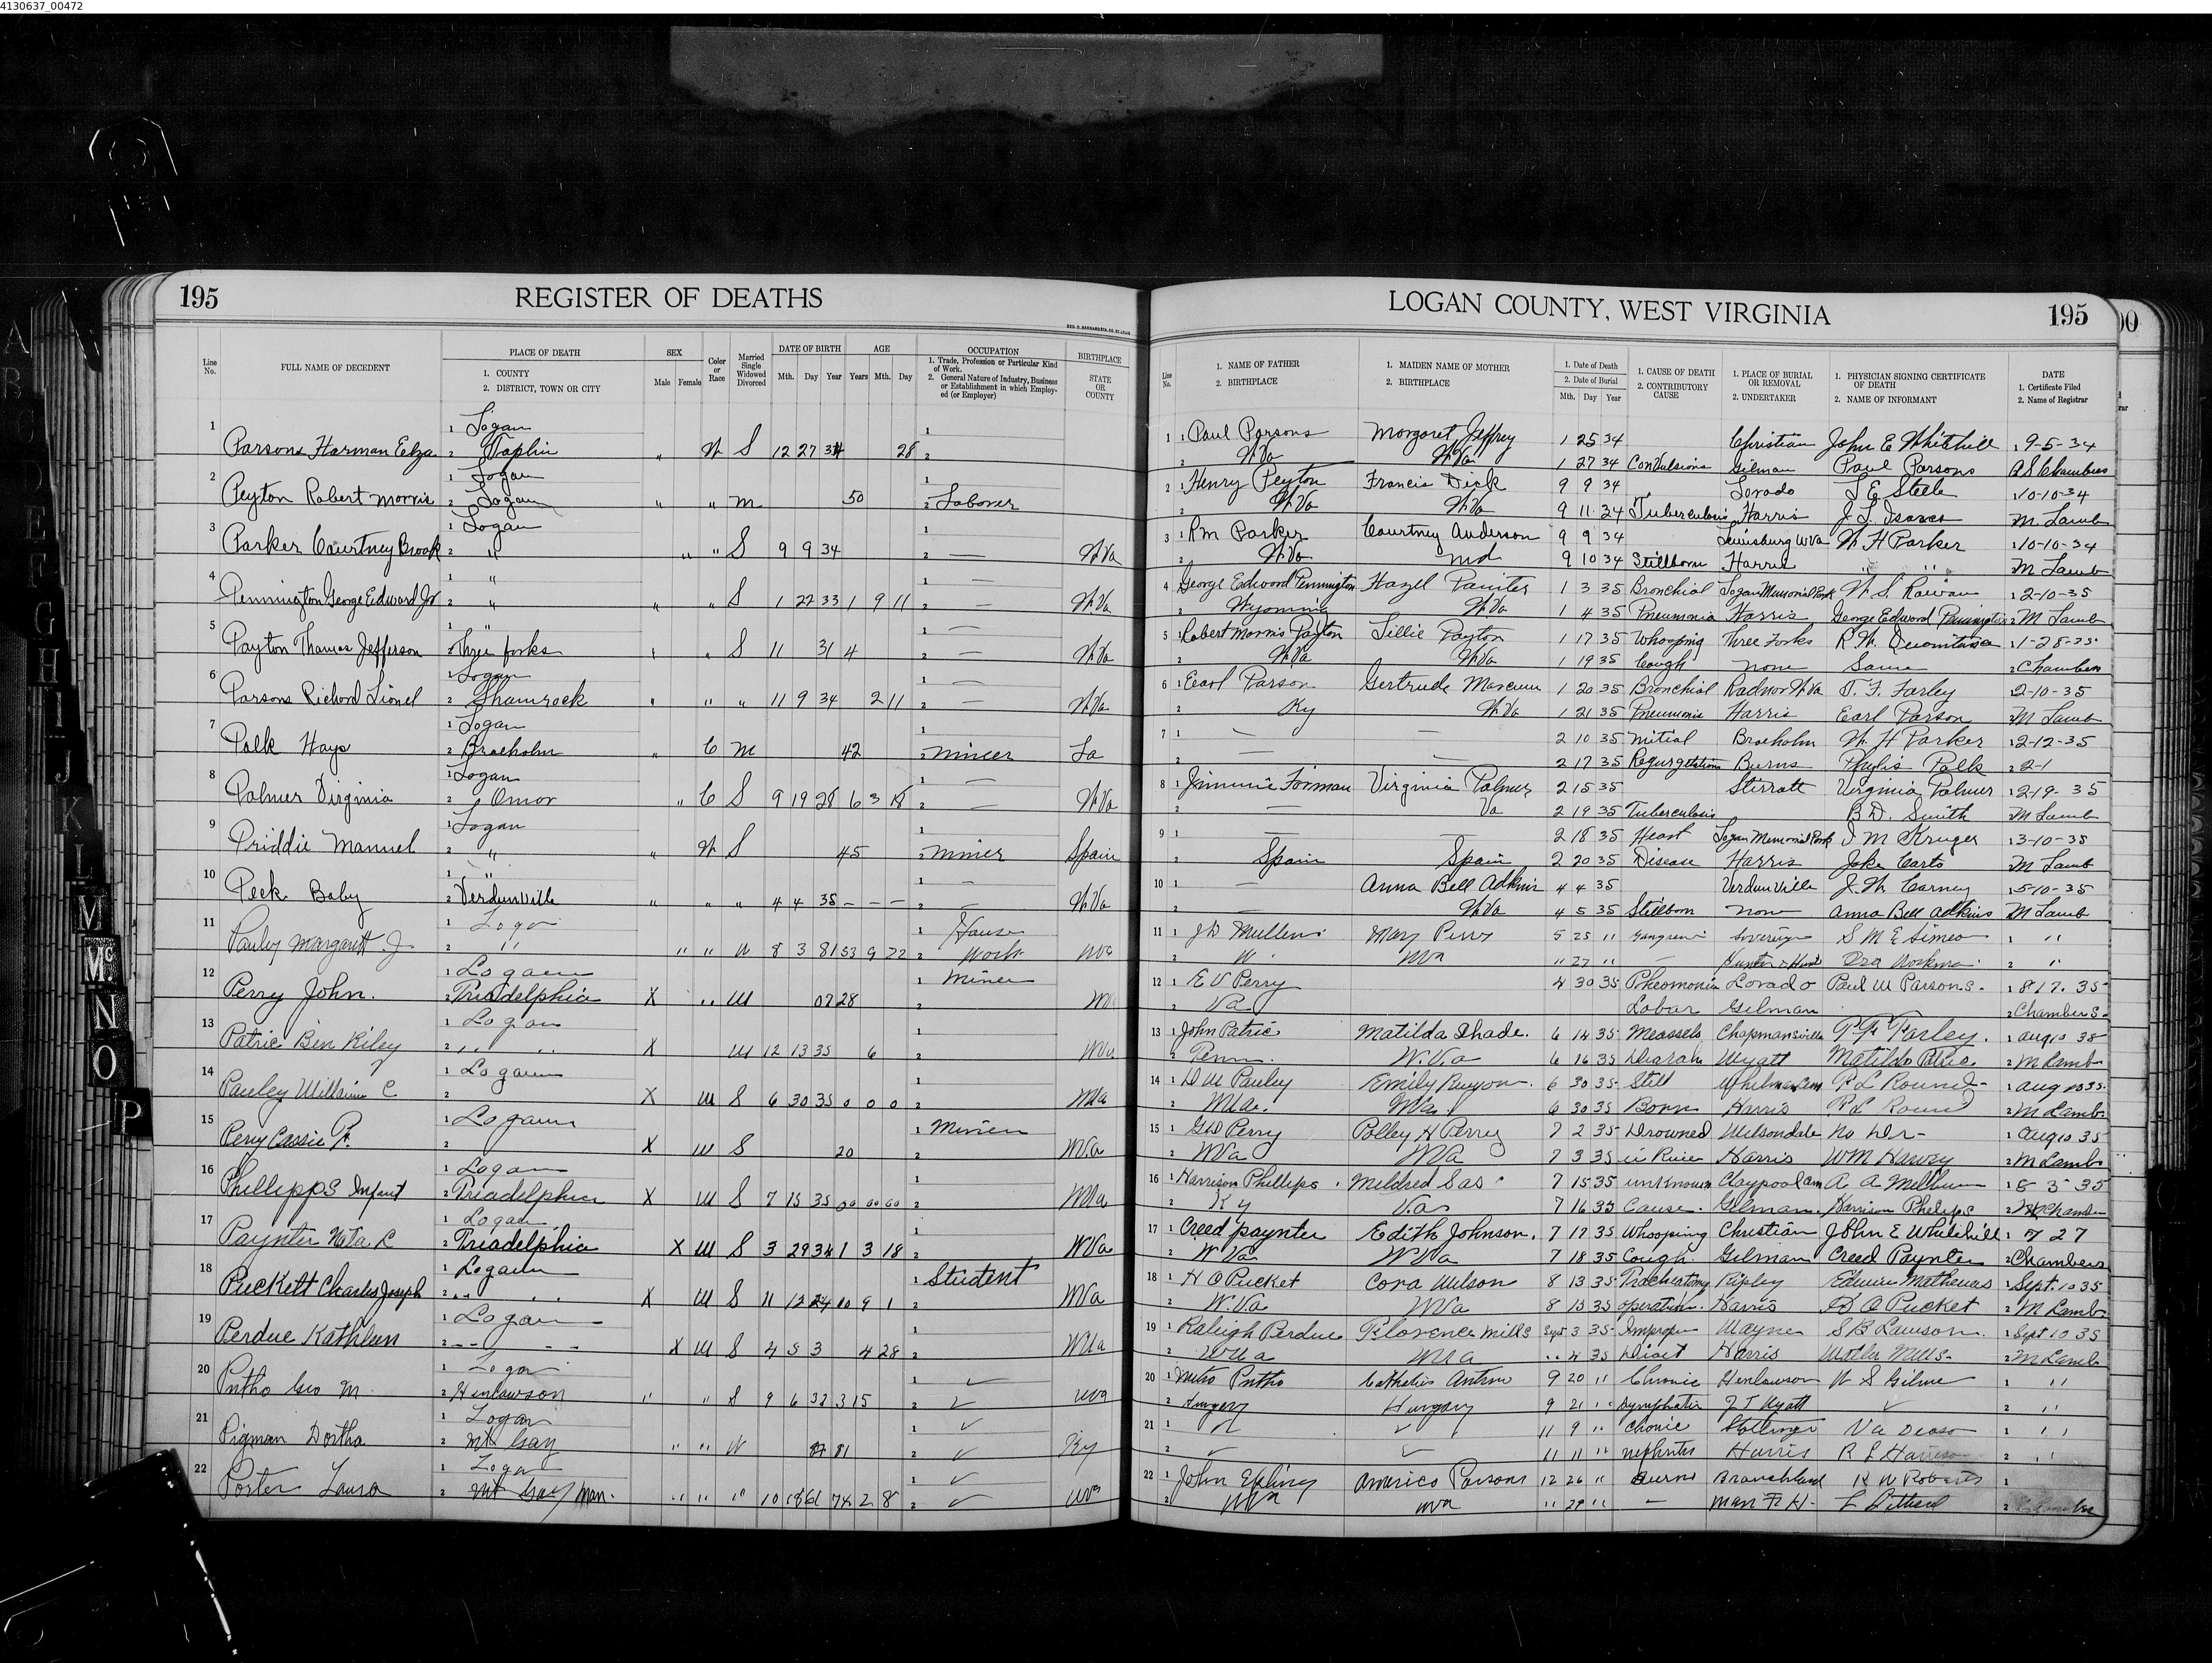 4130637_00472
195 REGISTER OF DEATHS
LOGAN COUNTY, WEST VIRGINIA 195
Line No. FULL NAME OF DECEDENT PLACE OF DEATH 1. COUNTY 2. DISTRICT, TOWN OR CITY SEX Male Female Color or Race Married Single Widowed Divorced DATE OF BIRTH Mth. Day Year AGE Years Mth. Day OCCUPATION 1. Trade, Profession or Particular Kind of Work. 2. General Nature of Industry, Business or Establishment in which Employed (or Employer) BIRTHPLACE STATE OR COUNTY
Line No. 1. NAME OF FATHER 2. BIRTHPLACE 1. MAIDEN NAME OF MOTHER 2. BIRTHPLACE 1. Date of Death 2. Date of Burial Mth. Day Year 1. CAUSE OF DEATH 2. CONTRIBUTORY CAUSE 1. PLACE OF BURIAL OR REMOVAL 2. UNDERTAKER 1. PHYSICIAN SIGNING CERTIFICATE OF DEATH 2. NAME OF INFORMANT DATE 1. Certificate Filed 2. Name of Registrar
1 1 Logan 1
Parsons Harman Elza 2 Taplin " W S 12 27 34 28 2
2 1 Logan 1
Peyton Robert Morris 2 Logan " " m 50 2 Laborer
3 1 Logan 1
Parker Courtney Brook 2 " " " S 9 9 34 2 — W Va
4 1 " 1 —
Pennington George Edward Jr 2 " " " S 1 22 33 1 9 11 2 — W Va
5 1 " 1 —
Payton Thomas Jefferson 2 Three forks " " S 11 31 4 2 — W Va
6 1 Logan 1 —
Parsons Richard Lionel 2 Shamrock " " " 11 9 34 2 11 2 — W Va
7 1 Logan 1
Polk Hays 2 Braeholm " C M 42 2 miner La
8 1 Logan 1 —
Palmer Virginia 2 Omar " C S 9 19 28 6 3 18 2 — W Va
9 1 Logan 1
Priddie Manuel 2 " " W S 45 2 miner Spain
10 1 " 1 —
Peck Baby 2 Verdunville " " " 4 4 35 — — — 2 — W Va
11 1 Loga 1 House
Pauley Margarett J 2 " " " W 8 3 81 53 9 22 2 Work WVa
12 1 Logan 1 Miner
Perry John. 2 Triadelphia X " W 07 28 2 W
13 1 Logan 1
Patric Ben Riley 2 " " X W 12 13 35 6 2 WVa
14 1 Logan 1
Pauley William C 2 X W S 6 30 35 0 0 0 2 WVa
15 1 Logan 1 Miner
Perry Cassie P. 2 X W S 20 2 WVa
16 1 Logan 1
Phillipps Infant 2 Triadelphia X W S 7 15 35 00 00 00 2 WVa
17 1 Logan 1
Paynter R 2 Triadelphia X W S 3 29 34 1 3 18 2 WVa
18 1 Logan 1 Student
Puckett Charles Joseph 2 " " X W S 11 12 24 10 9 1 2 WVa
19 1 Logan 1
Perdue Kathleen 2 " " X W S 4 5 3 4 28 2 WVa
20 1 Logan 1 ✓
Pntho Geo M. 2 Henlawson " " S 9 6 32 3 15 2 ✓ WVa
21 1 Logan 1 ✓
Pigman Dortha 2 Mt Gay " " W 81 2 ✓ Ky
22 1 Logan 1 ✓
Porter Laura 2 Mt Gay Man. " " " 10 18 61 74 2 8 2 ✓ WVa
1 1 Paul Parsons Margaret Jeffrey 1 25 34 Christian John E Whitehill 1 9-5-34
2 W Va W Va 1 27 34 Convulsions Gilman Paul Parsons A S Chambers
2 1 Henry Peyton Francis Dick 9 9 34 Lorado L E Steele 1 10-10-34
2 W Va W Va 9 11 34 Tuberculosis Harris J. L. Isaacs M. Lamb
3 1 Rm Parker Courtney Anderson 9 9 34 Lewisburg W Va W H Parker 1 10-10-34
2 W Va md 9 10 34 Stillborn Harris " " M Lamb
4 George Edward Pennington Hazel Painter 1 3 35 Bronchial Logan Memorial Park W. S. Rowan 1 2-10-35
2 Wyoming W Va 1 4 35 Pneumonia Harris George Edward Pennington 2 M Lamb
5 1 Robert Morris Payton Lillie Payton 1 17 35 Whooping Three Forks R. W. 1 1-28-35
2 W Va W Va 1 19 35 Cough none Same 2 Chambers
6 1 Earl Parson Gertrude Marcum 1 20 35 Bronchial Radnor W Va T. F. Farley 2-10-35
2 Ky W Va 1 21 35 Pneumonia Harris Earl Parson M Lamb
7 1 — — 2 10 35 Mitial Braeholm W. H Parker 1 2-12-35
2 — — 2 17 35 Regurgetations Burns Phylis Polk 2 2-1
8 1 Jimmie Forman Virginia Palmer 2 15 35 Stirratt Virginia Palmer 1 2-19-35
2 — Va 2 19 35 Tuberculosis B. D. Smith M Lamb
9 1 — — 2 18 35 Heart Logan Memorial Park I M Kruger 1 3-10-35
2 Spain Spain 2 20 35 Disease Harris Jake Carto M Lamb
10 1 — Anna Bell Adkins 4 4 35 Verdunville J. W. Carney 1 5-10-35
2 — W Va 4 5 35 Stillborn None Anna Bell Adkins M Lamb
11 1 J D Mullens Mary Perry 5 25 11 Gangrene Sovereign S M E Simeo 1 "
2 W. WVa " 27 " — Ora Workman 2 "
12 1 E V Perry 4 30 35 Pheomonia Lorado Paul W Parsons. 1 8 17. 35
2 Va Lobar Gilman 2 Chambers.
13 1 John Patric Matilda Shade. 6 14 35 Meassels Chapmansville T. F. Farley. 1 aug 10 35
2 Penn. W. Va 6 16 35 Wyatt Matilda Patric 2 M Lamb
14 1 D W Pauley Emily Runyon. 6 30 35 Still Whitman Cem P L Round 1 aug 10 35.
2 WVa. WVa. 6 30 35 Born Harris P L Round 2 M Lamb
15 1 G W Perry Polley H Perry 7 2 35 Drowned Wilsondale No Dr- 1 aug 10 35
2 WVa WVa 7 3 35 in River Harris WM Harvey 2 M Lamb
16 1 Harrison Phillips. Mildred Sas 7 15 35 unknown Claypool Cem A A Milburn 1 8 3 35
2 Ky Va. 7 16 35 Cause. Gilman. Harrison Phelips 2 Chamber
17 1 Creed paynter Edith Johnson. 7 17 35 Whooping Christian John E Whitehill 1 7 27
2 WVa WVa 7 18 35 Cough Gilman Creed Paynter 2 Chambers
18 1 H O Pucket Cora Wilson 8 13 35 Tracheotomy Ripley Edwin Mathews 1 Sept. 10 35
2 W. Va WVa 8 15 35 operation. Harris H O Pucket 2 M Lamb
19 1 Raleigh Perdue Florence Mills Sept 3 35 Improper Wayne S B Lawson. 1 Sept 10 35
2 WVa WVa " 4 35 Dieat Harris Walter Mills- 2 M Lamb
20 1 Metro Pntho 9 20 " Chronic Henlawson W S Gilme 1 "
2 Hungery Hungary 9 21 " Lymphatic J T Wyatt ✓ 2 "
21 1 ✓ 11 9 " Chonic Stollings Va Deaso 1 "
2 ✓ ✓ 11 11 " nephritis Harris R L Harrison 2 "
22 1 John Epling Americo Parsons 12 26 " Burns Branchland H W Roberts 1
2 WVa WVa " 29 " — Man F H- 2 Chambers
A B C D E F G H I J K L M Mc N O P